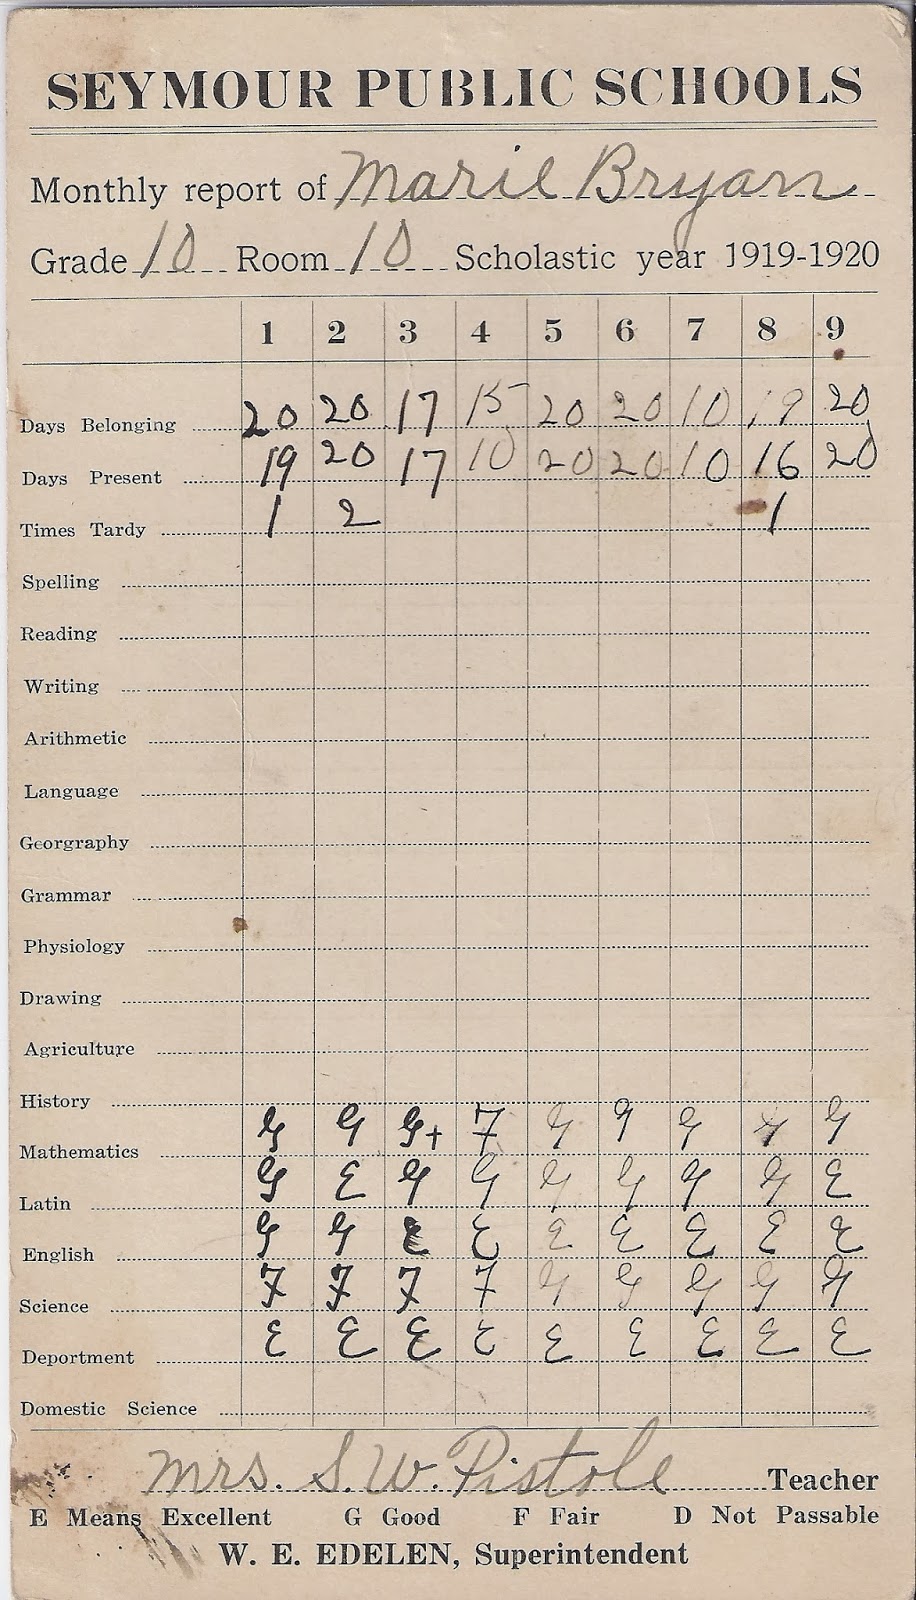 SEYMOUR PUBLIC SCHOOLS
Monthly report of Marie Bryan
Grade 10 Room 10 Scholastic year 1919-1920
1 2 3 4 5 6 7 8 9
Days Belonging 20 20 17 15 20 20 10 19 20
Days Present 19 20 17 10 20 20 10 16 20
Times Tardy 1 2 1
Spelling
Reading
Writing
Arithmetic
Language
Georgraphy
Grammar
Physiology
Drawing
Agriculture
History
Mathematics G G G+ F G G G G G
Latin G E G G G G G G E
English G G E E E E E E E
Science F F F F G G G G G
Deportment E E E E E E E E E
Domestic Science
Mrs. S. W. Pistole Teacher
E Means Excellent G Good F Fair D Not Passable
W. E. EDELEN, Superintendent